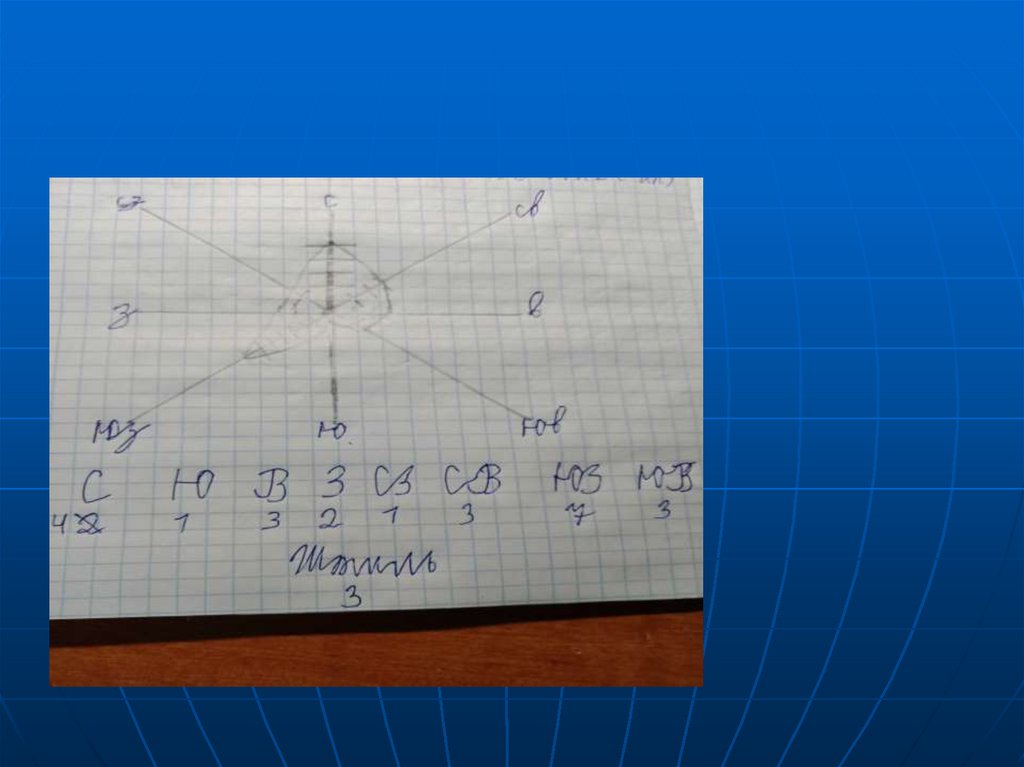 СЗ С СВ
З В
ЮЗ Ю ЮВ
С Ю В З СЗ СВ ЮЗ ЮВ
4 1 3 2 1 3 7 3
Штиль
3